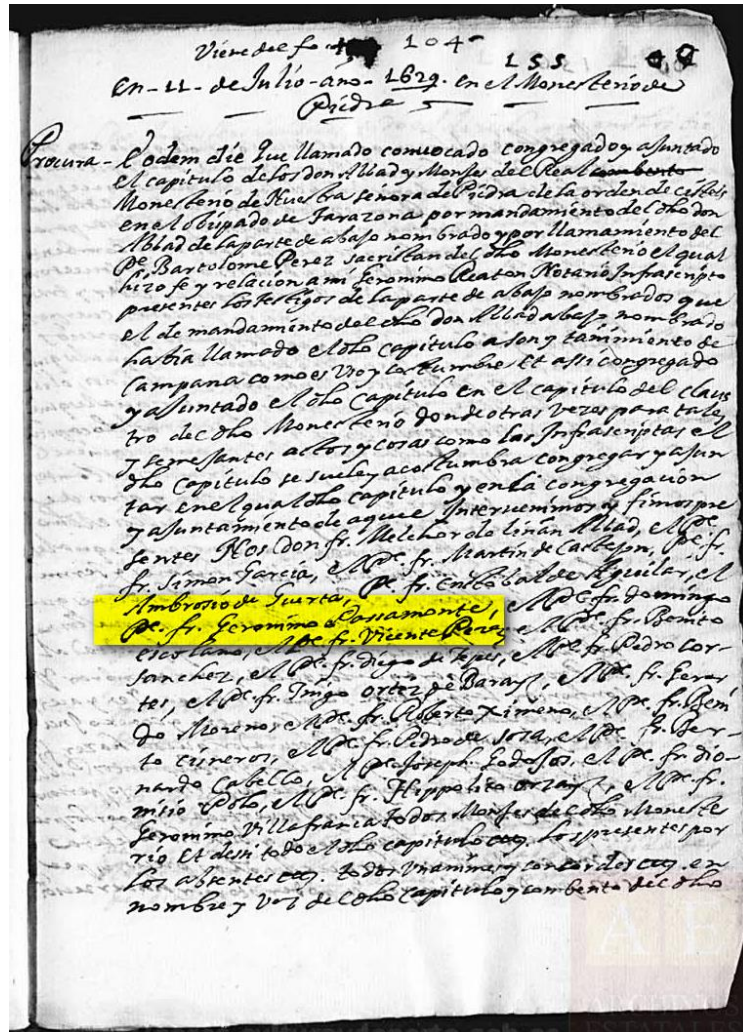 Viene del fo 104
155
En - 11 - de Julio - año - 1629 - en el Monesterio de
Piedra
Procura - Eodem die que llamado convocado congregado y ajuntado
el capitulo de los don Abbad y Monjes del Real combento
Monesterio de Nuestra señora de Piedra de la orden de cistels
en el obispado de Tarazona por mandamiento del dho don
Abbad de la parte de abajo nombrado y por llamamiento del
Pe. Bartolome Perez sacristan del dho Monesterio el qual
hizo fe y relacion a mi Geronimo Reaton Notario Infrascripto
presentes los testigos de la parte de abajo nombrados que
el de mandamiento del dho don Abbad abajo nombrado
habia llamado el dho capitulo a son y tañimiento de
Campana como es uso y costumbre Et assi congregado
y ajuntado el dho Capitulo en el capitulo del claus
tro del dho Monesterio donde otras vezes para tales
y semejantes actos y cosas como las Infrascriptas el
dho capitulo se suele y acostumbra congregar y ajun
tar en el qual dho capitulo y en la congregacion
y ajuntamiento de aquel Intervenimos y fimos pre
sentes Nos Don fr. Melchor de liñan Abbad, el Pe.
fr. Simon Garcia, el Pe. fr. Martin de Castejon, Pe. fr.
Ambrosio de Guerta, Pe. fr. Cristobal de Aguilar, el
Pe. fr. Geronimo Passamonte, el Pe. fr. Domingo
escolano, el Pe. fr. Vicente Perez, el Pe. fr. Benito
sanchez, el Pe. fr. diego de Yepes, el Pe. fr. Pedro Cor-
tes, el Pe. fr. Iñigo ortiz de Barays, el Pe. fr. Gerar
do Moreno, el Pe. fr. Roberto Ximeno, el Pe. fr. Beni
to cisneros, el Pe. fr. Pedro de sosa, el Pe. fr. Ber-
nardo Cabello, el Pe. Joseph Lodosos, el Pe. fr. dio-
nisio Polo, el Pe. fr. Hippolito, el Pe. fr.
Geronimo Villafranca todos Monjes del dho Moneste
rio Et desi todo el dho capitulo los presentes por
los absentes todos unanimes y concordes en
nombre y voz del dho capitulo y combento del dho
A E
ARCHIVOS